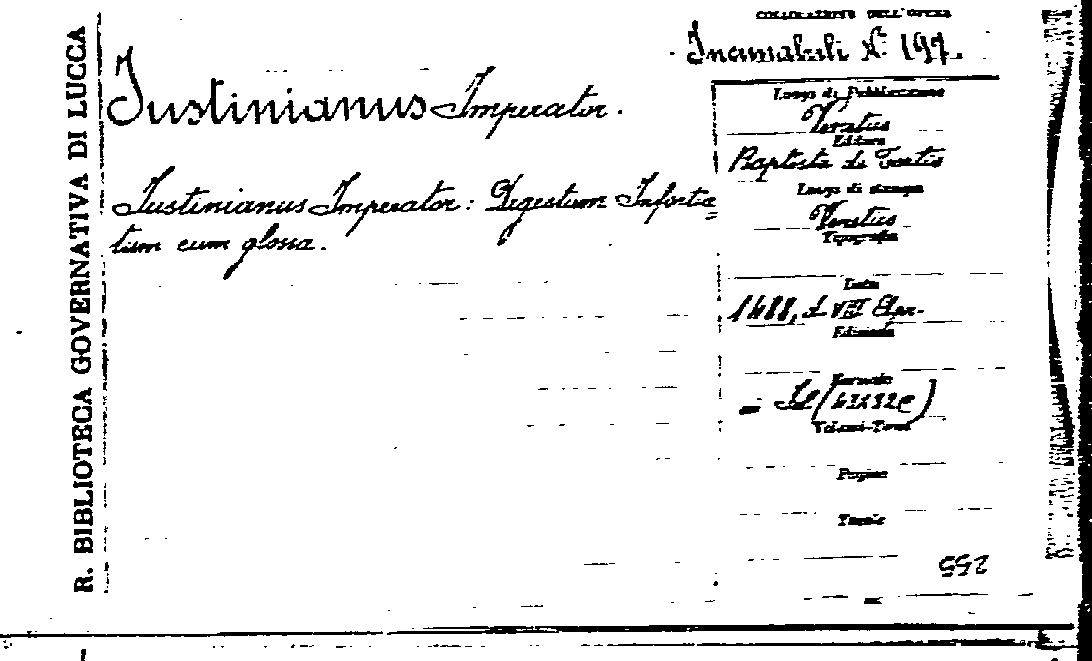 R. BIBLIOTECA GOVERNATIVA DI LUCCA
COLLOCAZIONE DELL'OPERA
Incunabuli N. 197.
Justinianus Imperator.
Justinianus Imperator: Digestum Infortia=
tum cum glossa.
Luogo di Pubblicazione
Venetiis
Editore
Baptista de Tortis
Luogo di stampa
Venetiis
Tipografia
Data
1488, d. VII
Edizione
Formato
Volumi-Tomi
Pagine
Tavole
255